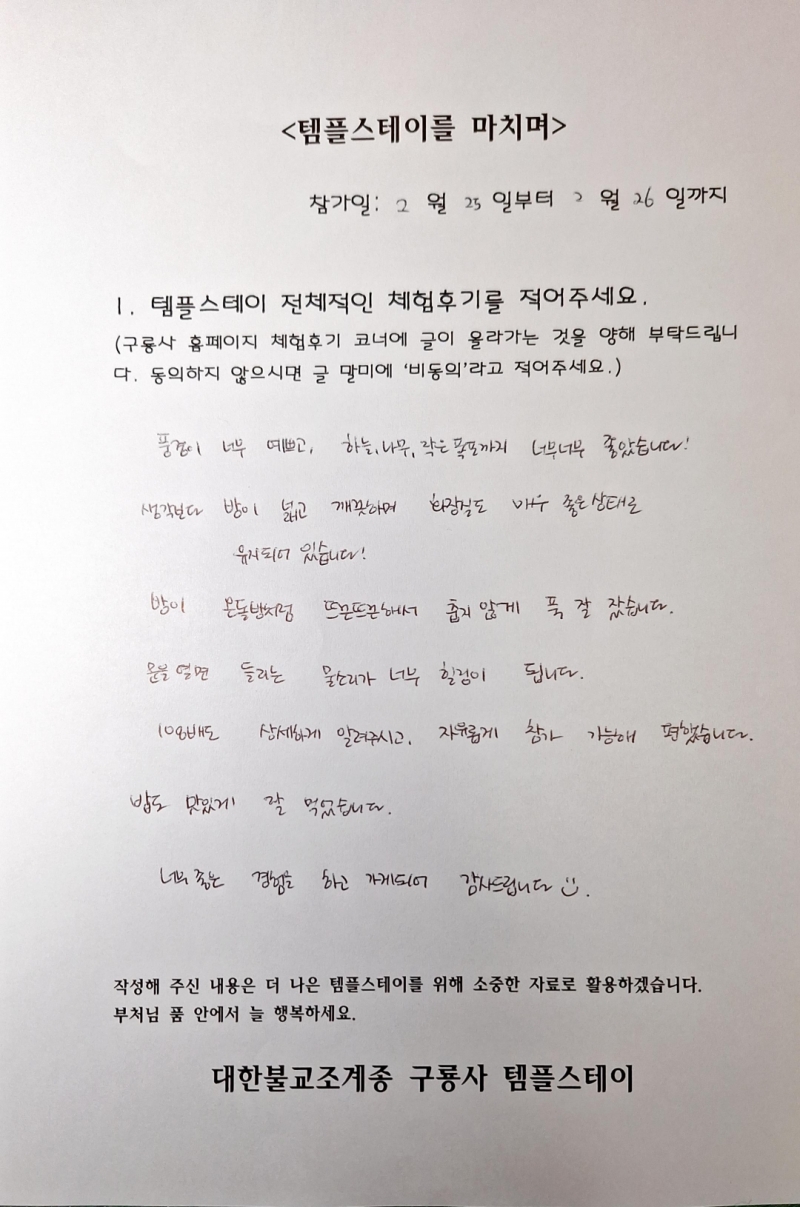 <템플스테이를 마치며>
참가일: 2 월 25 일부터 2 월 26 일까지
1. 템플스테이 전체적인 체험후기를 적어주세요.
(구룡사 홈페이지 체험후기 코너에 글이 올라가는 것을 양해 부탁드립니
다. 동의하지 않으시면 글 말미에 '비동의'라고 적어주세요.)
풍경이 너무 예쁘고, 하늘, 나무, 작은 폭포까지 너무너무 좋았습니다!
생각보다 방이 넓고 깨끗하며 화장실도 매우 좋은 상태로
유지되어 있습니다!
방이 온돌방처럼 뜨끈뜨끈해서 춥지 않게 푹 잘 잤습니다.
문을 열면 들리는 물소리가 너무 힐링이 됩니다.
108배도 상세하게 알려주시고, 자유롭게 참가 가능해 편했습니다.
밥도 맛있게 잘 먹었습니다.
너무 좋은 경험을 하고 가게되어 감사드립니다 :).
작성해 주신 내용은 더 나은 템플스테이를 위해 소중한 자료로 활용하겠습니다.
부처님 품 안에서 늘 행복하세요.
대한불교조계종 구룡사 템플스테이